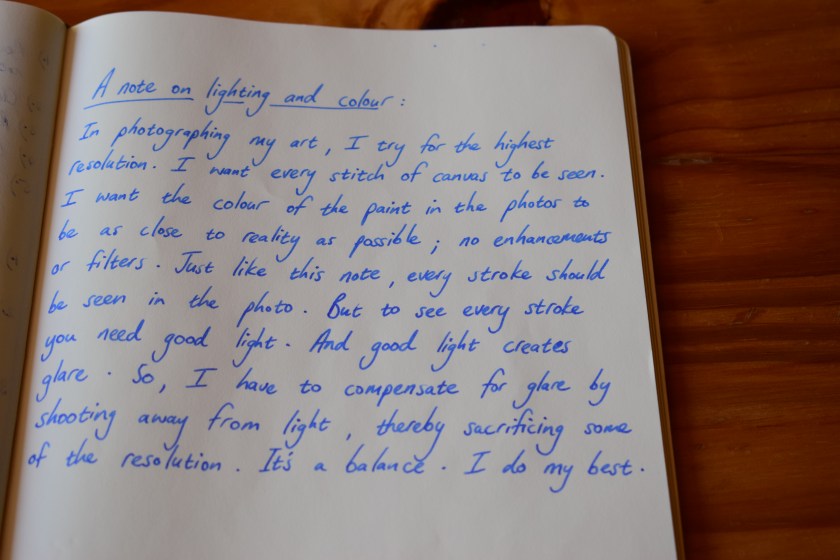 A note on lighting and colour :
In photographing my art, I try for the highest
resolution. I want every stitch of canvas to be seen.
I want the colour of the paint in the photos to
be as close to reality as possible ; no enhancements
or filters. Just like this note, every stroke should
be seen in the photo. But to see every stroke
you need good light. And good light creates
glare. So, I have to compensate for glare by
shooting away from light, thereby sacrificing some
of the resolution. It's a balance. I do my best.